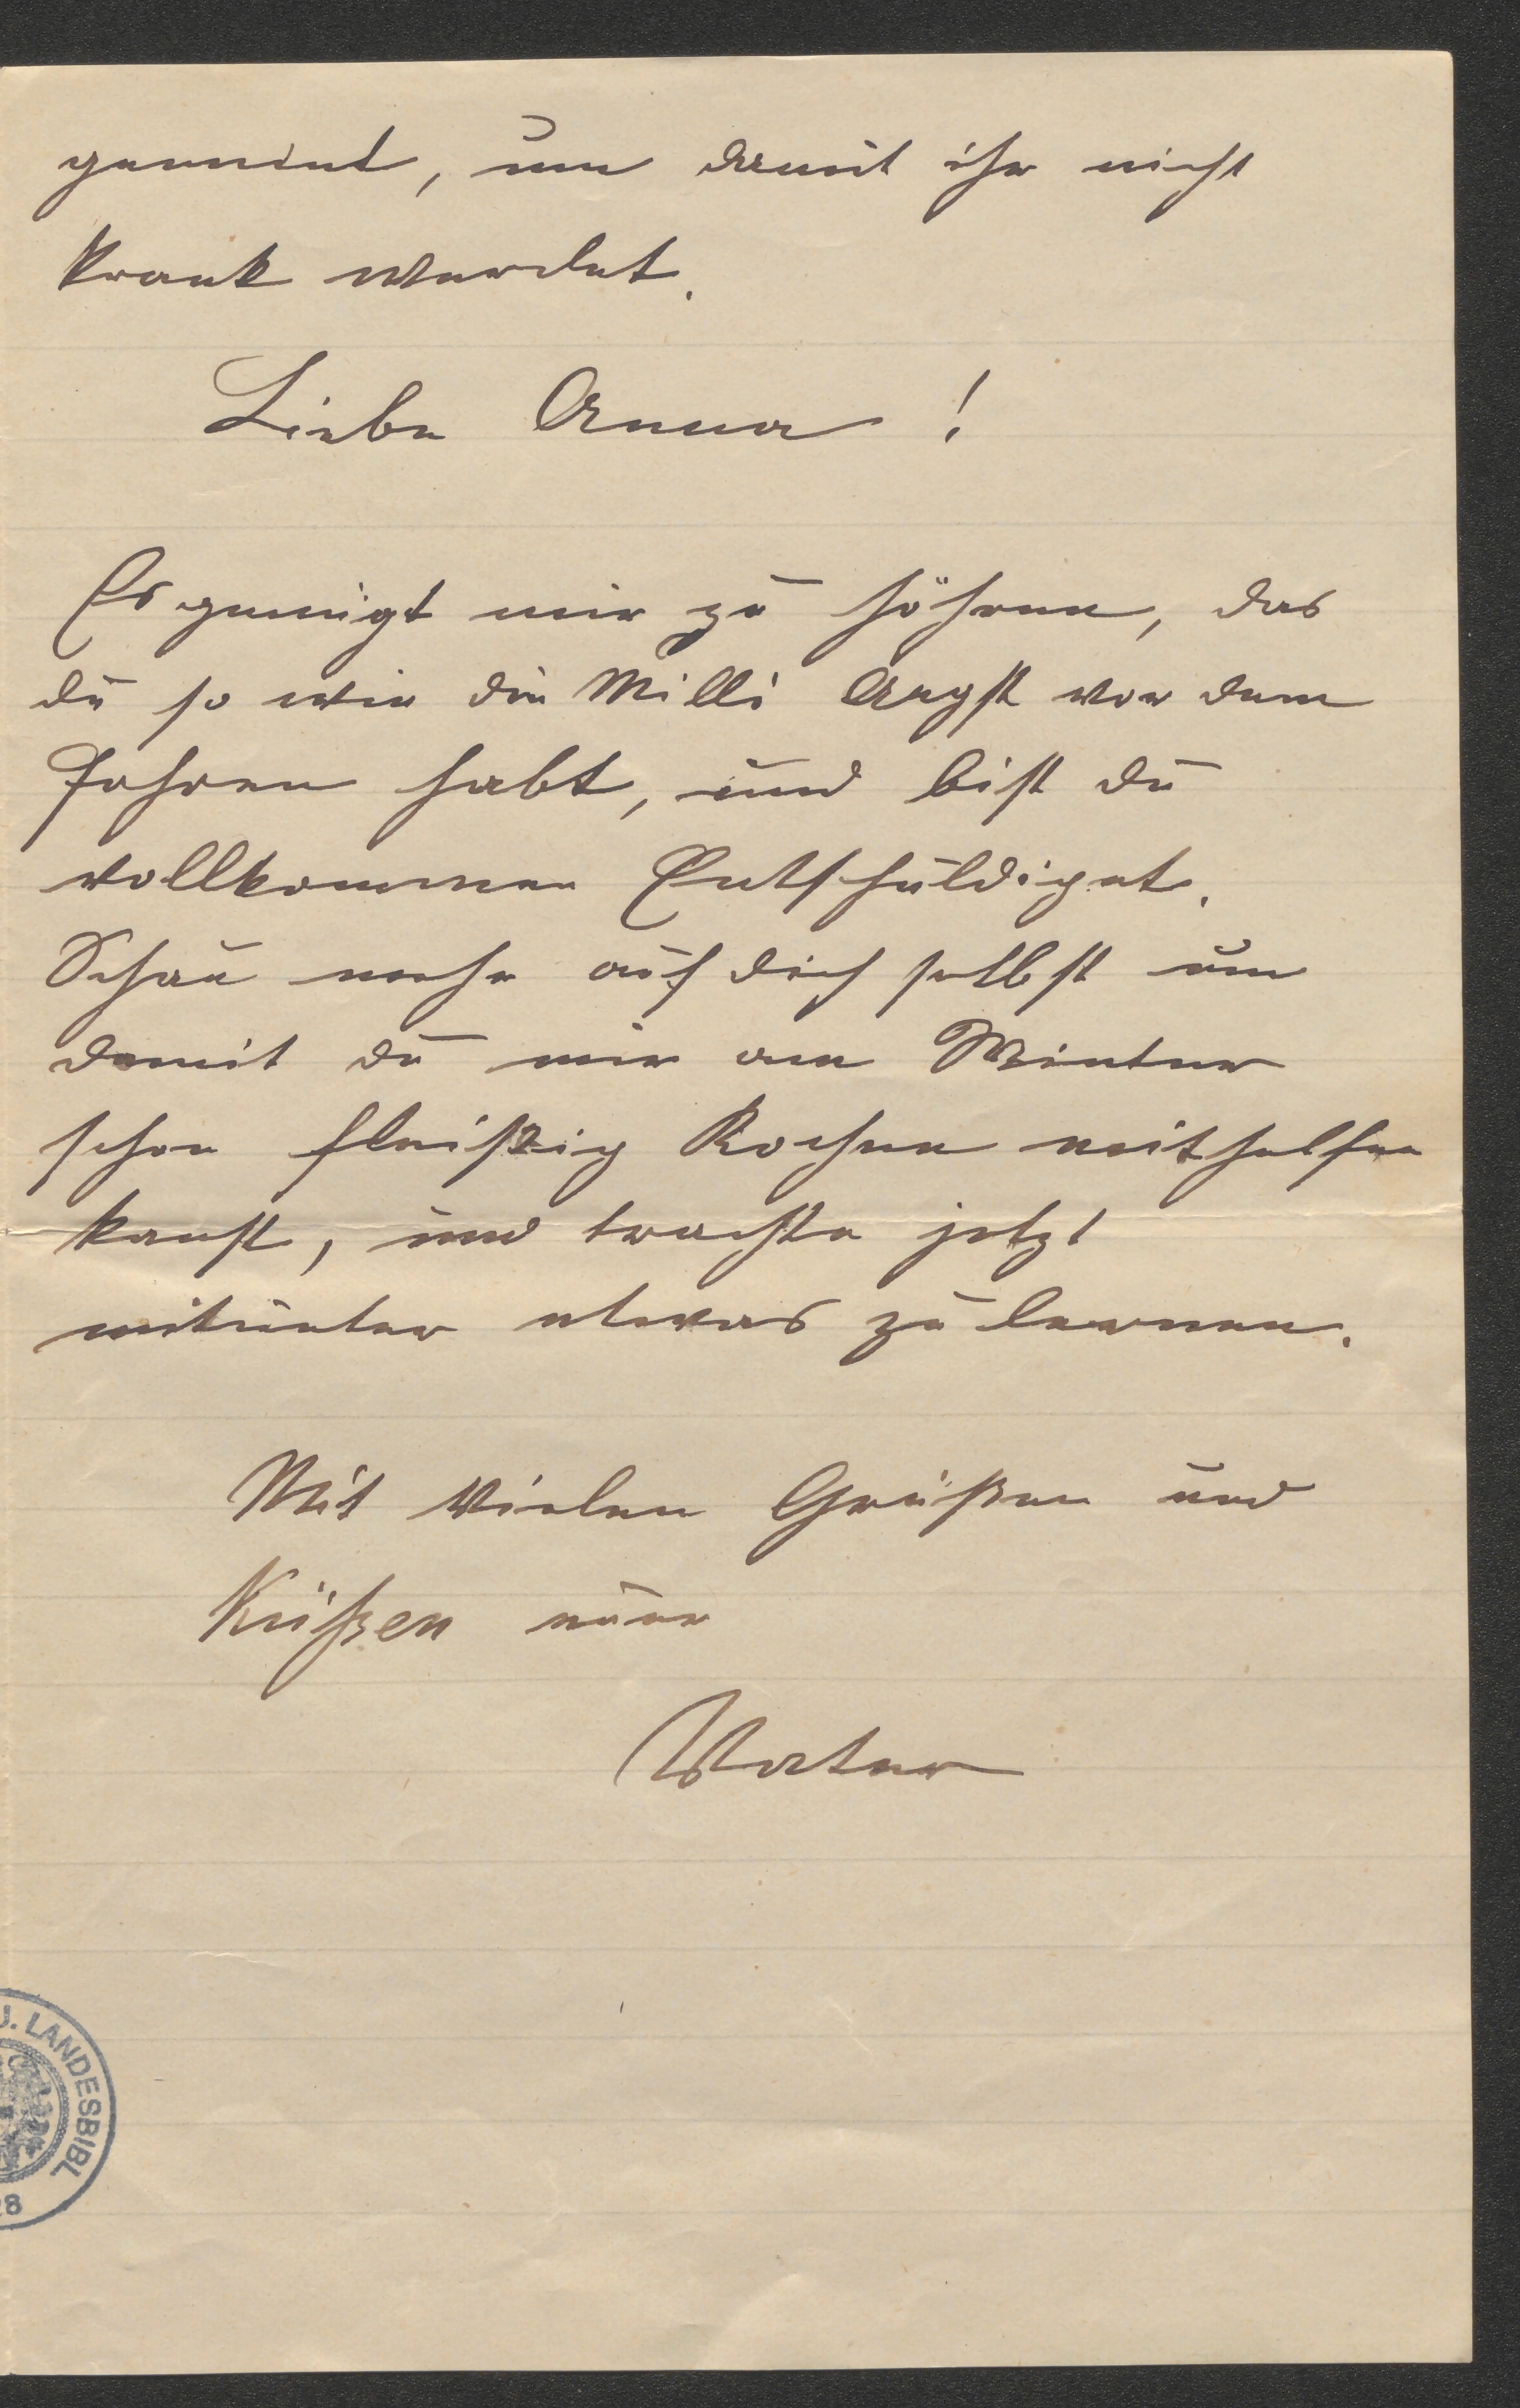 gemeint, um damit ihr nicht
krank werdet.
Liebe Anna!
Es genügt mir zu höhren, das
du so wie die Milli Angst vor dem
Fahren habt, und bist du
vollkommen Entschuldiget.
Schau mehr auf dich selbst um
damit du mir am Winter
schon fleißig Kochen mithelfen
kanst, und trachte jetzt
mitunter etwas zu lernen.
Mit vielen Grüßen und
Küßen euer
Vater
U. LANDESBIBL
28